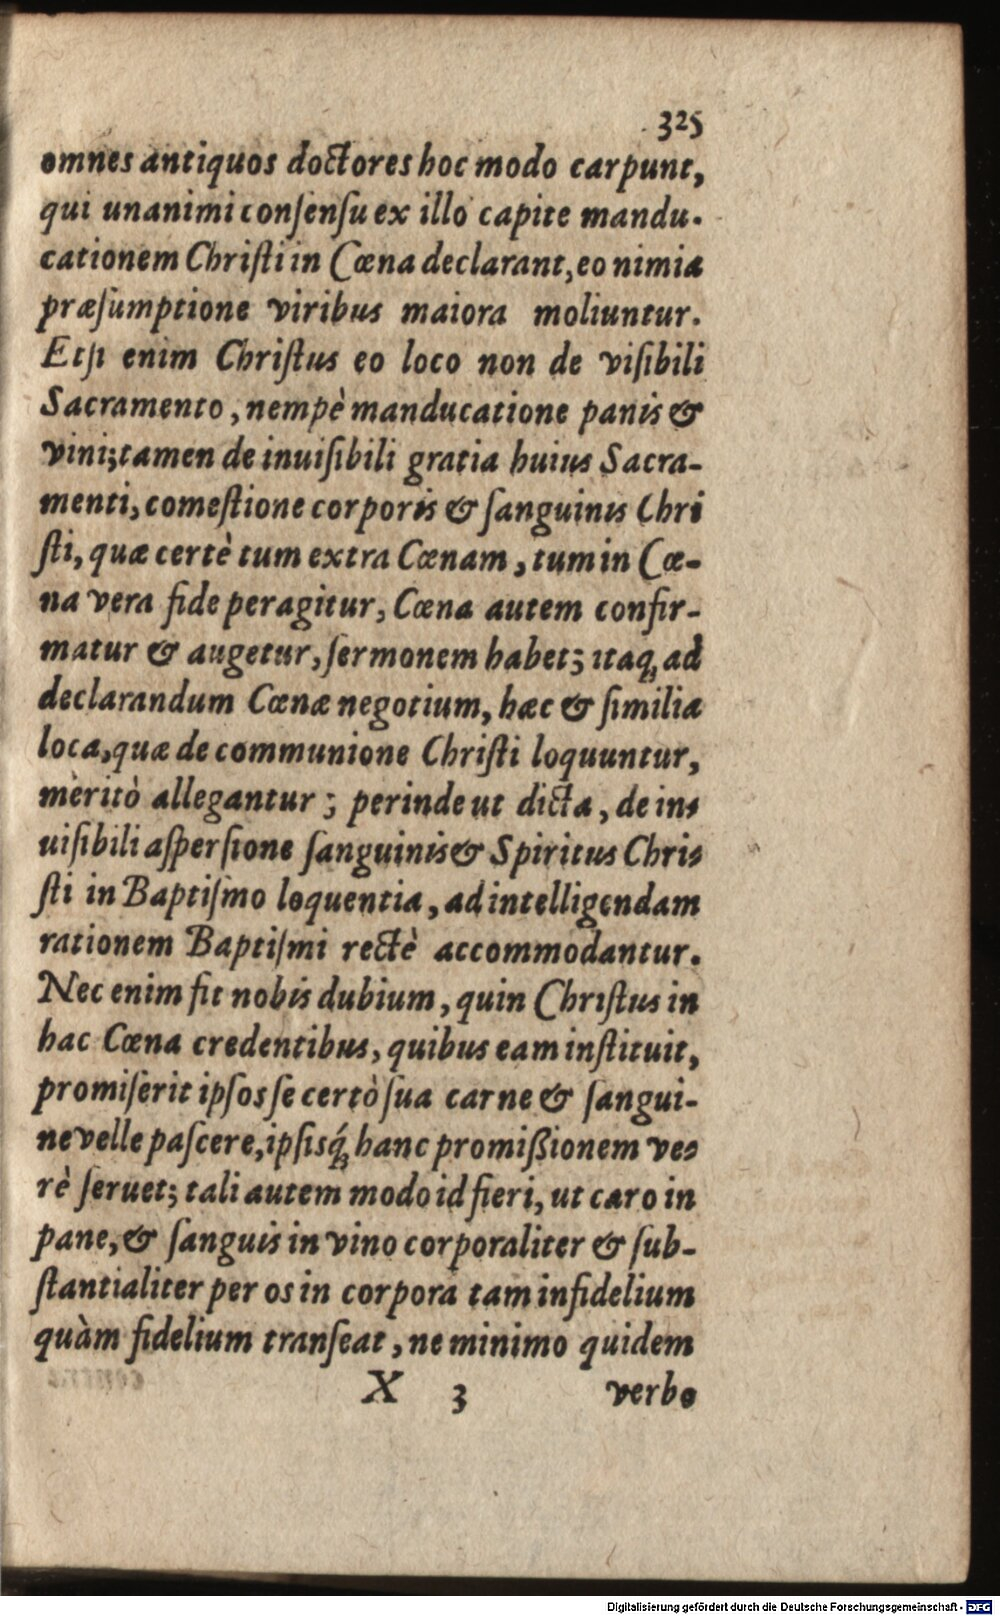 325
omnes antiquos doctores hoc modo carpunt,
qui unanimi conſenſu ex illo capite mandu-
cationem Chriſti in Cœna declarant, eo nimia
præſumptione viribus maiora moliuntur.
Etſi enim Chriſtus eo loco non de viſibili
Sacramento, nempè manducatione panis &
vini; tamen de inuiſibili gratia huius Sacra-
menti, comeſtione corporis & ſanguinis Chri
ſti, quæ certè tum extra Cœnam, tum in Cœ-
na vera fide peragitur, Cœna autem confir-
matur & augetur, ſermonem habet; itaq; ad
declarandum Cœnæ negotium, hæc & ſimilia
loca, quæ de communione Chriſti loquuntur,
meritò allegantur; perinde ut dicta, de in-
uiſibili aſperſione ſanguinis & Spiritus Chri-
ſti in Baptiſmo loquentia, ad intelligendam
rationem Baptiſmi rectè accommodantur.
Nec enim fit nobis dubium, quin Chriſtus in
hac Cœna credentibus, quibus eam inſtituit,
promiſerit ipſos ſe certò ſua carne & ſangui-
ne velle paſcere, ipſisq́; hanc promißionem ve-
rè ſeruet; tali autem modo id fieri, ut caro in
pane, & ſanguis in vino corporaliter & ſub-
ſtantialiter per os in corpora tam infidelium
quàm fidelium tranſeat, ne minimo quidem
X 3 verbo
Digitalisierung gefördert durch die Deutsche Forschungsgemeinschaft - DFG